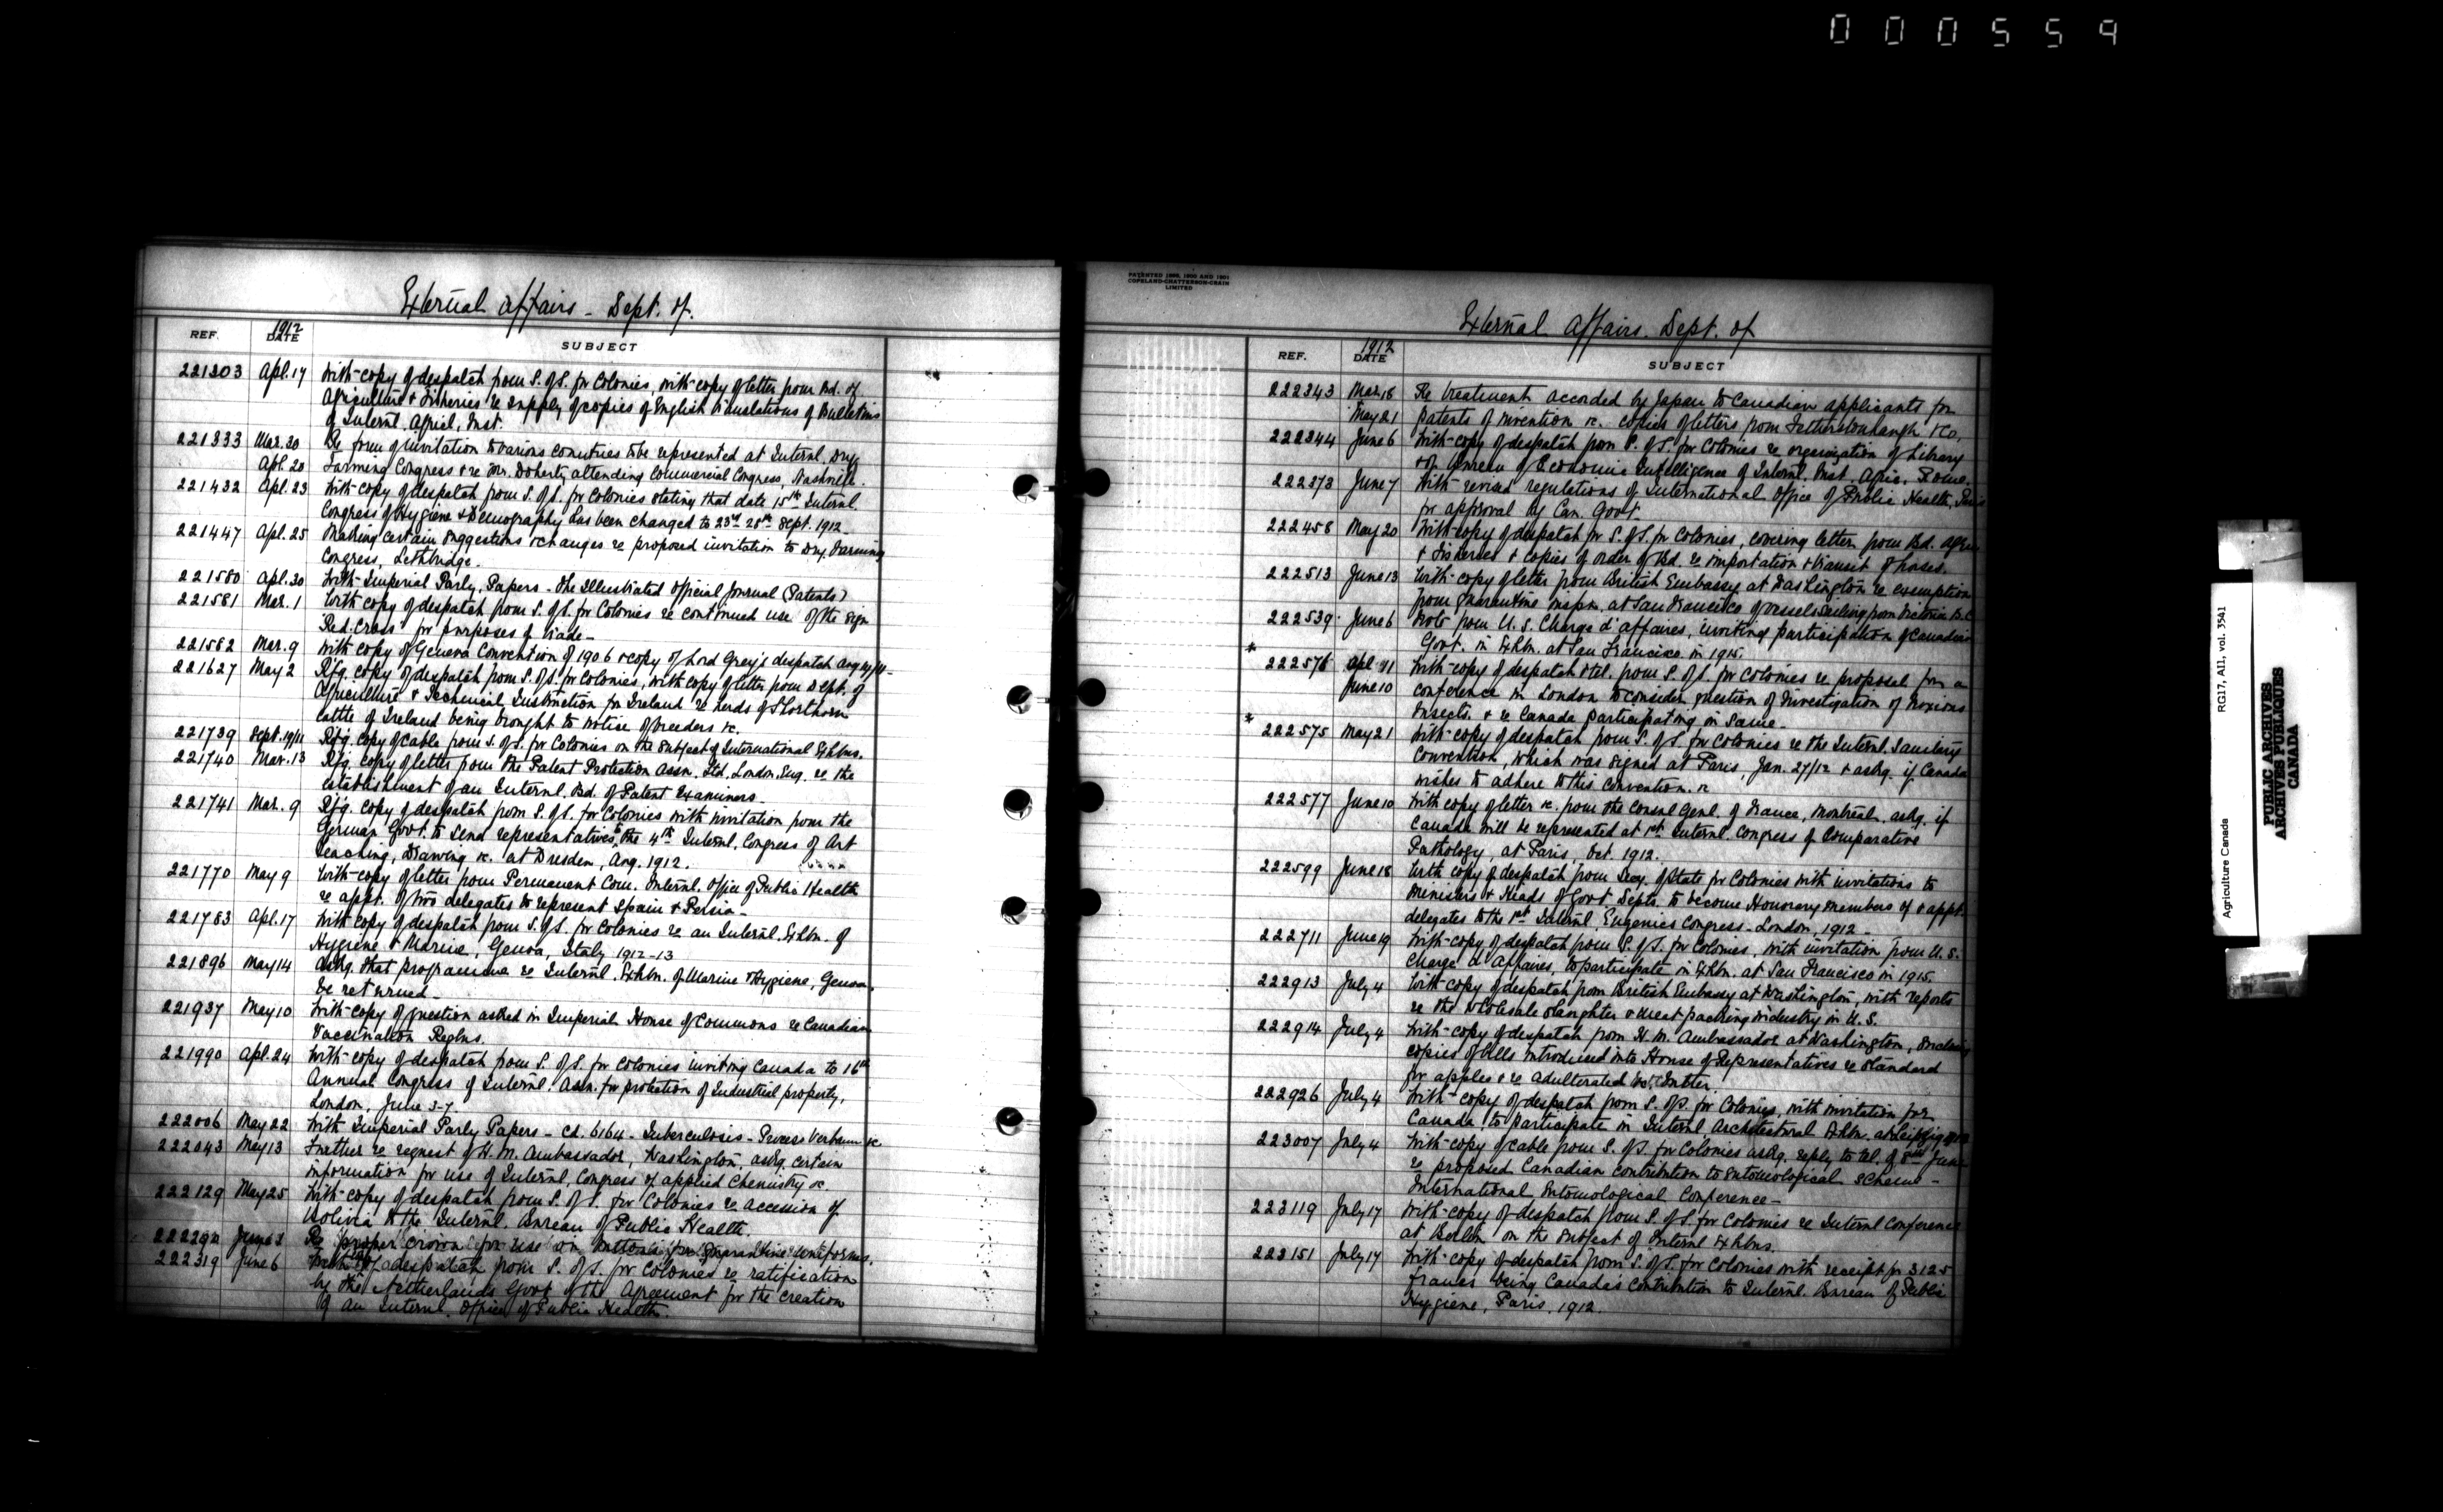 000559
External Affairs - Dept. of.
REF.
1912
DATE
SUBJECT
221303 Apl. 17 With copy of despatch from S. of S. for Colonies, with copy of letter from Bd. of
Agriculture & Fisheries re supply of copies of English translations of Bulletins
of Internl. Agricl. Inst.
221333 Mar. 30 Re form of invitation to various countries to be represented at Internl. Dry
Apl. 20 Farming Congress & re Mr. Doherty attending Commercial Congress, Nashville.
221432 Apl. 23 With copy of despatch from S. of S. for Colonies stating that date 15th Internl.
Congress of Hygiene & Demography has been changed to 23rd 28th Sept. 1912
221447 Apl. 25 Making certain suggestions & changes re proposed invitation to Dry Farming
Congress, Lethbridge.
221580 Apl. 30 With Imperial Parly. Papers - the Illustrated Official Journal (Patents)
221581 Mar. 1 With copy of despatch from S. of S. for Colonies re continued use of the sign
Red. Cross for purposes of trade -
221582 Mar. 9 With copy of Geneva Convention of 1906 & copy of Lord Grey's despatch Aug
221627 May 2 Rfg. copy of despatch from S. of S. for Colonies, with copy of letter from Dept. of
Agriculture & Technical Instruction for Ireland re herds of Shorthorn
cattle of Ireland being brought to notice of breeders &c.
221739 Sept. 19/11 Rfg. copy of cable from S. of S. for Colonies on the subject of International Exhbns.
221740 Mar. 13 Rfg. copy of letter from the Patent Protection Assn. Ltd. London. Eng. re the
establishment of an Internl. Bd. of Patent Examiners -
221741 Mar. 9 Rfg. copy of despatch from S. of S. for Colonies with invitation from the
German Govt. to send representatives to the 4th Internl. Congress of Art
Teaching, Drawing &c. at Dresden, Aug. 1912.
221770 May 9 With copy of letter from Permanent Com. Internl. Office of Public Health
re appt. of two delegates to represent Spain & Persia -
221783 Apl. 17 With copy of despatch from S. of S. for Colonies re an Internl. Exhbn. of
Hygiene & Marine, Genoa, Italy 1912-13
221896 May 14 Askg. that programme re Internl. Exhbn. of Marine & Hygiene, Genoa
be returned -
221937 May 10 With copy of question asked in Imperial House of Commons re Canadian
Vaccination Regtns.
221990 Apl. 24 With copy of despatch from S. of S. for Colonies inviting Canada to 16th
Annual Congress of Internl. Assn. for protection of Industrial property,
London, June 3-7
222006 May 22 With Imperial Parly Papers - Cd. 6164 - Tuberculosis - Process Verbaux &c.
222043 May 13 Further re request of H. M. Ambassador, Washington, askg. certain
information for use of Internl. Congress of applied Chemistry &c.
222129 May 25 With copy of despatch from S. of S. for Colonies re accession of
Bolivia to the Internl. Bureau of Public Health.
June 3 Re proper crown for use on buttons for Quarantine uniforms.
222319 June 6 With copy despatch from S. of S. for Colonies re ratification
by the Netherlands Govt. of the Agreement for the creation
of an Internl. Office of Public Health.
PATENTED 1898, 1900 AND 1901
COPELAND-CHATTERSON-CRAIN
LIMITED
External Affairs. Dept. of
REF.
1912
DATE
SUBJECT
222343 Mar. 18 Re treatment accorded by Japan to Canadian applicants for
May 21 patents of invention &c. copies of letters from Fetherstonhaugh & Co.
222344 June 6 With copy of despatch from S. of S. for Colonies re organization of Library
& of Bureau of Economic Intelligence of Internl. Inst. Agric. Rome.
222373 June 7 With revised regulations of International Office of Public Health, Paris
for approval by Can. Govt.
222458 May 20 With copy of despatch fr S. of S. for Colonies, covering letter from Bd. Agric
& Fisheries & copies of order of Bd. re importation & transit of horses.
222513 June 13 With copy of letter from British Embassy at Washington re exemption
from quarantine inspn. at San Francisco of vessels sailing from Victoria B.C.
222539 June 6 Note from U. S. Charge d'affaires, inviting participation of Canadian
Govt. in Exhbn. at San Francisco in 1915.
* 222576 Apl. 11 With copy of despatch & tel. from S. of S. for Colonies re proposal for a
June 10 conference in London to consider question of investigation of noxious
Insects. & re Canada participating in same -
* 222575 May 21 With copy of despatch from S. of S. for Colonies re the Internl. Sanitary
Convention, which was signed at Paris, Jan. 27/12 & askg. if Canada
wishes to adhere to this convention. &c
222577 June 10 With copy of letter &c. from the Consul Genl. of France, Montreal, askg. if
Canada will be represented at 1st Internl. Congress of Comparative
Pathology, at Paris, Oct. 1912.
222599 June 18 With copy of despatch from Secy. of State for Colonies with invitations to
Ministers & Heads of Govt Depts. to become Honorary members of & appt.
delegates to the 1st Internl. Eugenics Congress - London, 1912 -
222711 June 19 With copy of despatch from S. of S. for Colonies, with invitation from U. S.
Charge d'Affaires, to participate in Exhbn. at San Francisco in 1915.
222913 July 4 With copy of despatch from British Embassy at Washington, with reports
re the wholesale slaughter & meat packing industry in U. S.
222914 July 4 With copy of despatch from H. M. Ambassador at Washington, enclosing
copies of bills introduced into House of Representatives re standard
for apples & re adulterated butter.
222926 July 4 With copy of despatch from S. of S. for Colonies, with invitation for
Canada to participate in Internl Architectural Exhbn. at Leipzig
223007 July 4 With copy of cable from S. of S. for Colonies askg. reply to tel. of 8th June
re proposed Canadian contribution to entomological scheme -
International Entomological Conference -
223119 July 17 With copy of despatch from S. of S. for Colonies re Internl Conference
at Berlin on the subject of Internl Exhbns.
223151 July 17 With copy of despatch from S. of S. for Colonies with receipt for 3125
francs being Canada's contribution to Internl. Bureau of Public
Hygiene, Paris. 1912.
Agriculture Canada RG17, AII, vol. 3541
PUBLIC ARCHIVES
ARCHIVES PUBLIQUES
CANADA